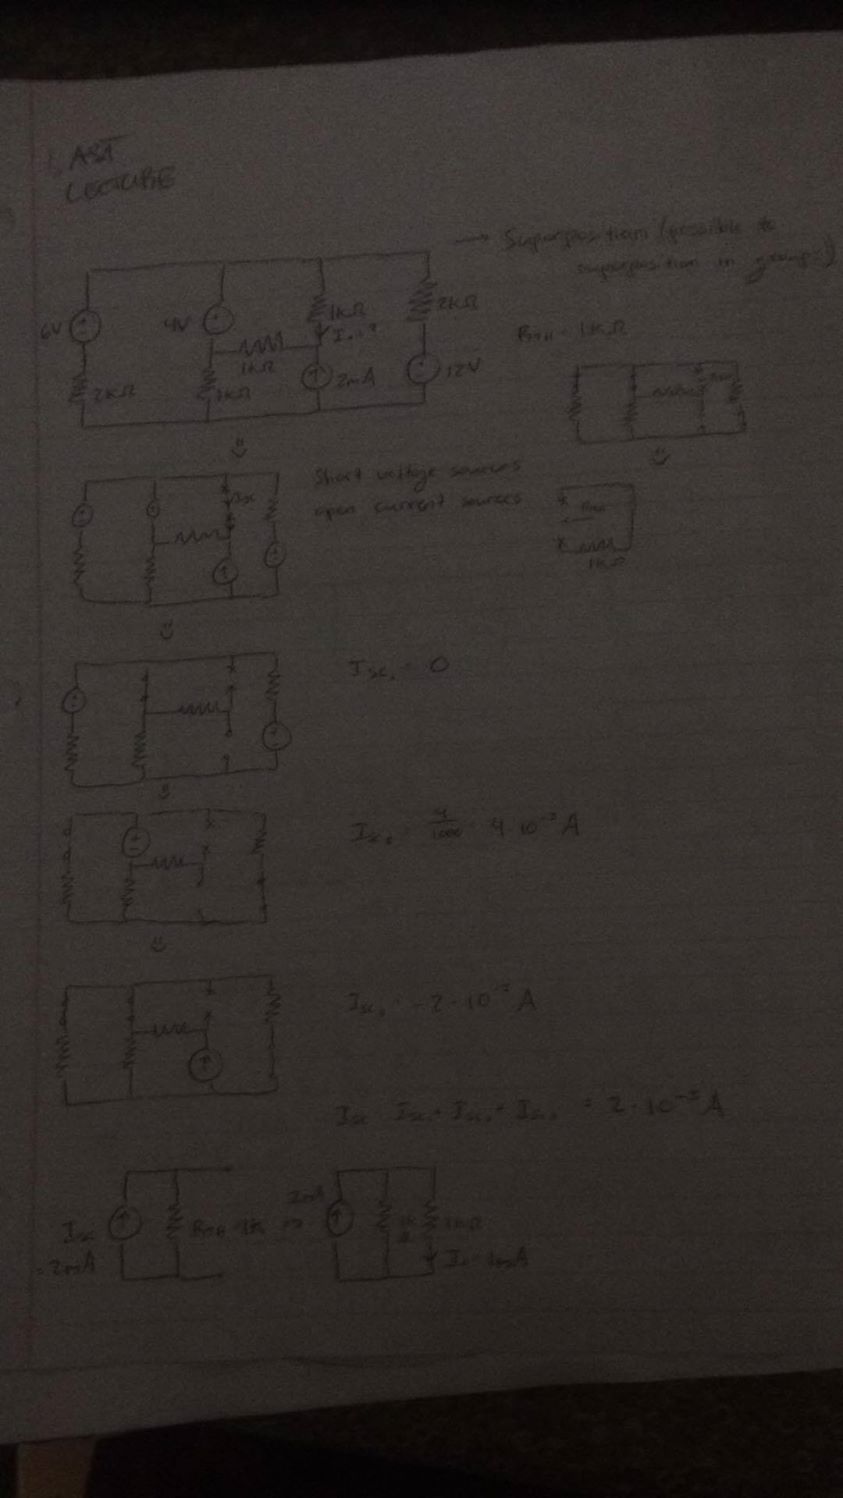 LAST
LECTURE
→ Superposition (possible to
superposition in groups)
6V
4V
1KΩ
2KΩ
I₀=?
1KΩ
2mA
12V
2KΩ
1KΩ
RTH = 1KΩ
Short voltage sources
open current sources
Isc
RTH
1KΩ
Isc₁ = 0
Isc₂ = 4/1000 = 4·10⁻³ A
Isc₃ = -2·10⁻³ A
Isc = Isc₁ + Isc₂ + Isc₃ = 2·10⁻³ A
Isc
= 2mA
RTH = 1K
⇒
2mA
1KΩ
I₀ = 1mA